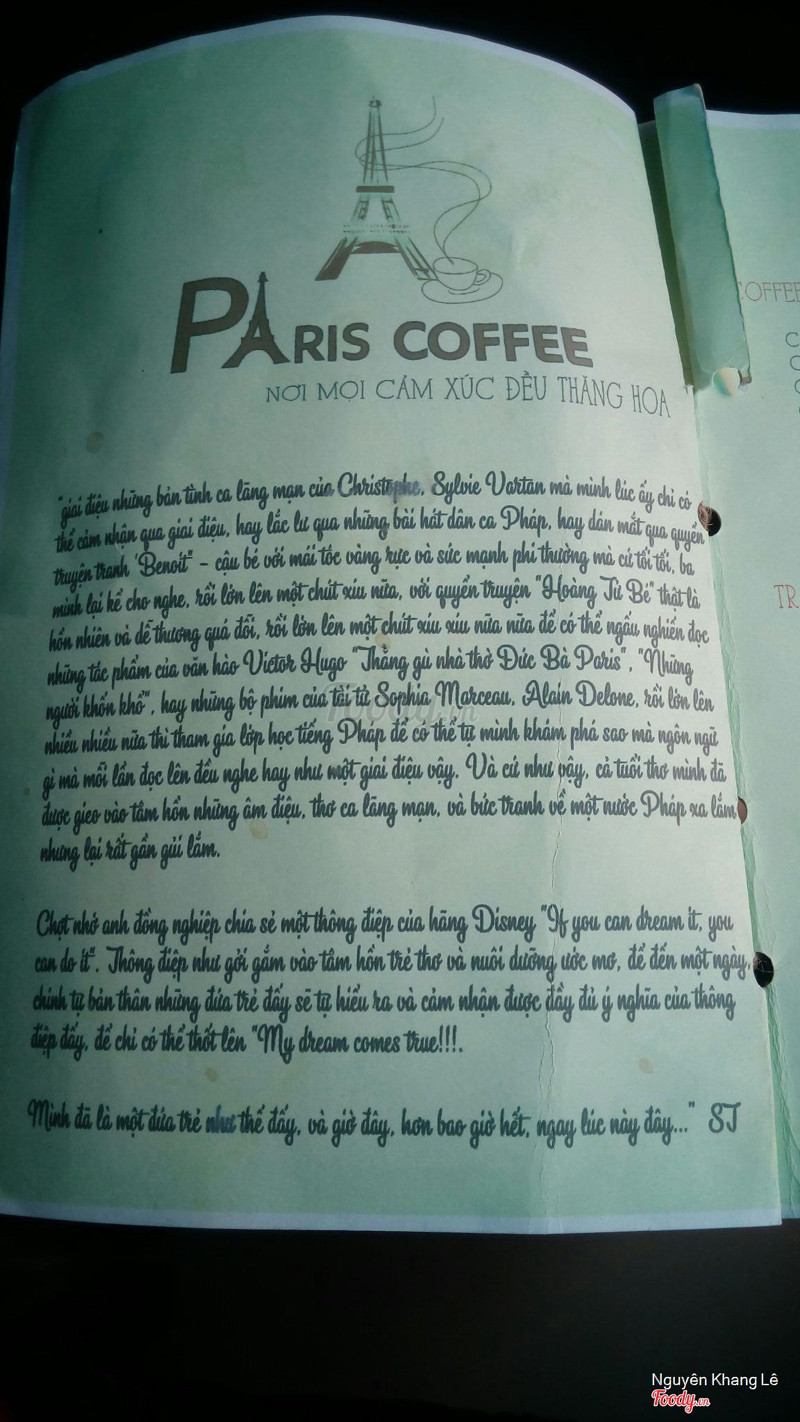 PARIS COFFEE
NƠI MỌI CẢM XÚC ĐỀU THĂNG HOA
"giai điệu những bản tình ca lãng mạn của Christophe, Sylvie Vartan mà mình lúc ấy chỉ có
thể cảm nhận qua giai điệu, hay lắc lư qua những bài hát dân ca Pháp, hay dán mắt qua quyển
truyện tranh 'Benoit" - cậu bé với mái tóc vàng rực và sức mạnh phi thường mà cứ tối tối, ba
mình lại kể cho nghe, rồi lớn lên một chút xíu nữa, với quyển truyện "Hoàng Tử Bé" thật là
hồn nhiên và dễ thương quá đỗi, rồi lớn lên một chút xíu xíu nữa nữa để có thể ngấu nghiến đọc
những tác phẩm của văn hào Victor Hugo "Thằng gù nhà thờ Đức Bà Paris", "Những
người khốn khổ", hay những bộ phim của tài tử Sophia Marceau, Alain Delone, rồi lớn lên
nhiều nhiều nữa thì tham gia lớp học tiếng Pháp để có thể tự mình khám phá sao mà ngôn ngữ
gì mà mỗi lần đọc lên đều nghe hay như một giai điệu vậy. Và cứ như vậy, cả tuổi thơ mình đã
được gieo vào tâm hồn những âm điệu, thơ ca lãng mạn, và bức tranh về một nước Pháp xa lắm
nhưng lại rất gần gũi lắm.
Chợt nhớ anh đồng nghiệp chia sẻ một thông điệp của hãng Disney "If you can dream it, you
can do it". Thông điệp như gởi gắm vào tâm hồn trẻ thơ và nuôi dưỡng ước mơ, để đến một ngày,
chính tự bản thân những đứa trẻ đấy sẽ tự hiểu ra và cảm nhận được đầy đủ ý nghĩa của thông
điệp đấy, để chỉ có thể thốt lên "My dream comes true!!!.
Mình đã là một đứa trẻ như thế đấy, và giờ đây, hơn bao giờ hết, ngay lúc này đây..." ST
COFFEE
TR
Nguyên Khang Lê
Foody.vn